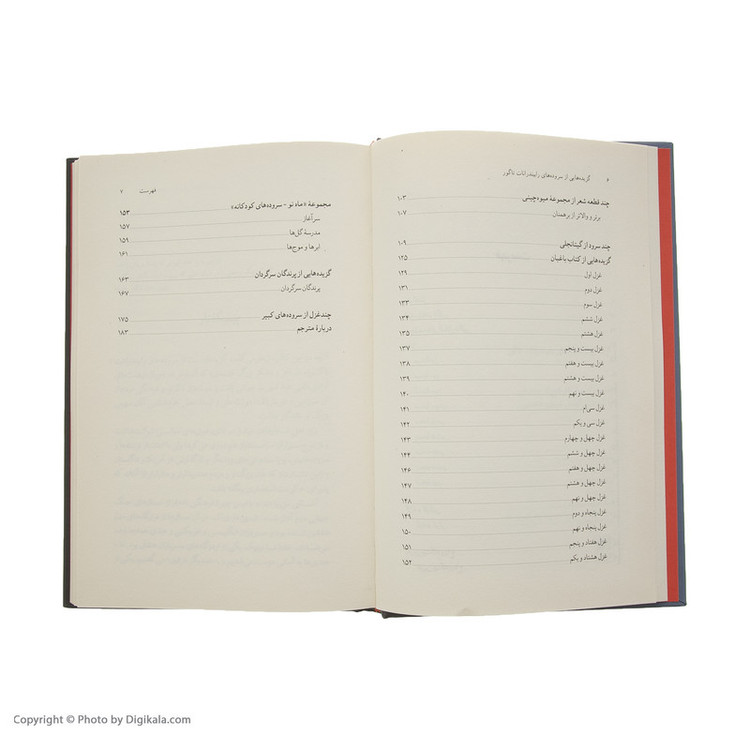 ۶ گزیده‌هایی از سروده‌های رابیندرانات تاگور
چند قطعه شعر از مجموعهٔ میوه‌چینی ۱۰۳
برتر و والاتر از برهمنان ۱۰۷
چند سرود از گیتانجلی ۱۰۹
گزیده‌هایی از کتاب باغبان ۱۲۵
غزل اول ۱۲۹
غزل دوم ۱۳۱
غزل سوم ۱۳۳
غزل ششم ۱۳۴
غزل هشتم ۱۳۵
غزل بیست و پنجم ۱۳۷
غزل بیست و هفتم ۱۳۸
غزل بیست و هشتم ۱۳۹
غزل بیست و نهم ۱۴۰
غزل سی‌ام ۱۴۱
غزل سی و یکم ۱۴۲
غزل چهل و چهارم ۱۴۳
غزل چهل و ششم ۱۴۴
غزل چهل و هفتم ۱۴۶
غزل چهل و هشتم ۱۴۷
غزل چهل و نهم ۱۴۸
غزل پنجاه و دوم ۱۴۹
غزل پنجاه و نهم ۱۵۰
غزل هفتاد و پنجم ۱۵۱
غزل هشتاد و یکم ۱۵۲
فهرست ۷
مجموعهٔ «ماه نو - سروده‌های کودکانه» ۱۵۳
سرآغاز ۱۵۷
مدرسهٔ گل‌ها ۱۵۹
ابرها و موج‌ها ۱۶۱
گزیده‌هایی از پرندگان سرگردان ۱۶۳
پرندگان سرگردان ۱۶۷
چند غزل از سروده‌های کبیر ۱۷۵
دربارهٔ مترجم ۱۸۳
Copyright © Photo by Digikala.com